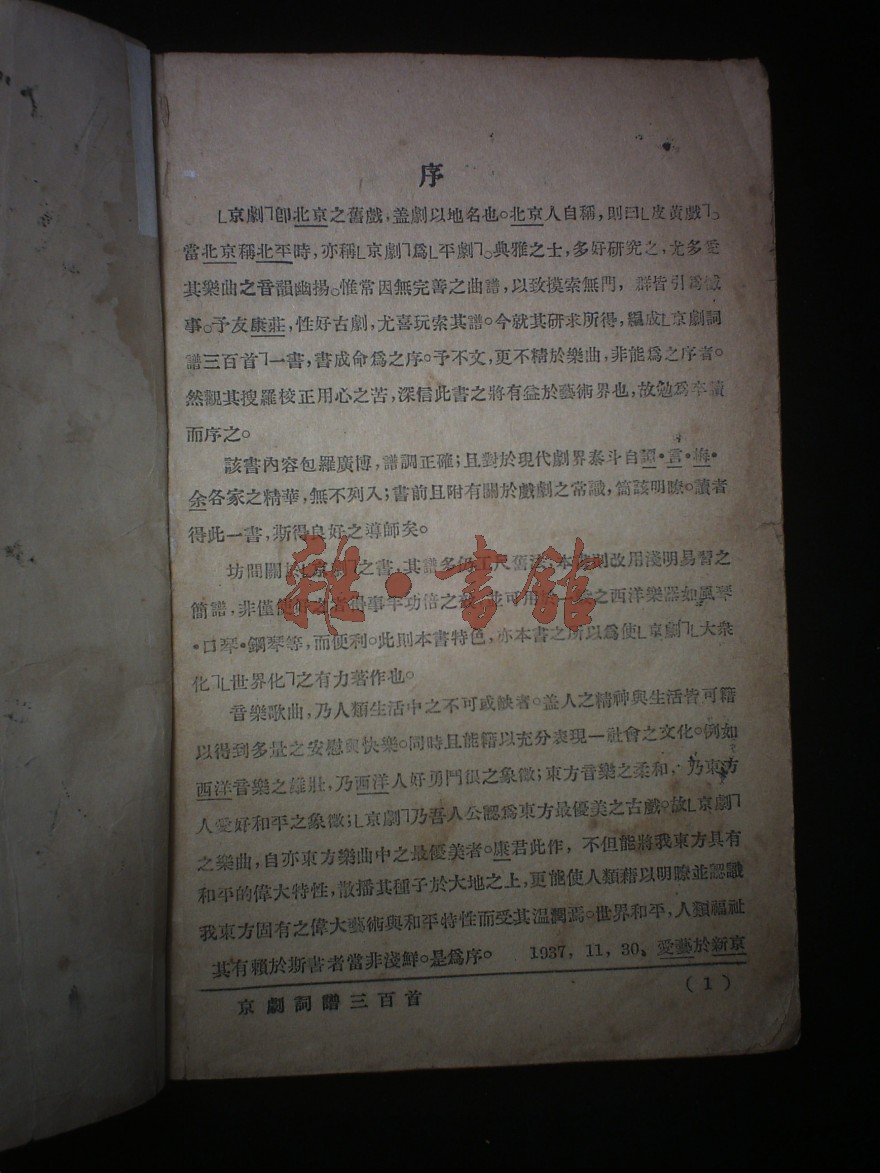 序
「京劇」卽北京之舊戲,蓋劇以地名也。北京人自稱,則曰「皮黃戲」。
當北京稱北平時,亦稱「京劇」爲「平劇」。典雅之士,多好研究之,尤多愛
其樂曲之音韻幽揚。惟常因無完善之曲譜,以致摸索無門,群皆引爲憾
事。予友康莊,性好古劇,尤喜玩索其譜。今就其研求所得,編成「京劇詞
譜三百首」一書,書成命爲之序。予不文,更不精於樂曲,非能爲之序者。
然觀其搜羅校正用心之苦,深信此書之將有益於藝術界也,故勉爲卒讀
而序之。
該書內容包羅廣博,譜調正確;且對於現代劇界泰斗自譚·言·梅·
余各家之精華,無不列入;書前且附有關於戲劇之常識,簡該明瞭。讀者
得此一書,斯得良好之導師矣。
坊間關於「京劇」之書,其譜多仍工尺舊法;本書則改用淺明易習之
簡譜,非僅使好之者得事半功倍之效,並可用之西洋樂器如風琴
·口琴·鋼琴等,而便利。此則本書特色,亦本書之所以爲使「京劇」「大衆
化」「世界化」之有力著作也。
音樂歌曲,乃人類生活中之不可或缺者。蓋人之精神與生活皆可藉
以得到多量之安慰與快樂。同時且能藉以充分表現一社會之文化。例如
西洋音樂之雄壯,乃西洋人好勇鬥狠之象徵;東方音樂之柔和,乃東方
人愛好和平之象徵;「京劇」乃吾人公認爲東方最優美之古戲。故「京劇」
之樂曲,自亦東方樂曲中之最優美者。康君此作,不但能將我東方具有
和平的偉大特性,散播其種子於大地之上,更能使人類藉以明瞭並認識
我東方固有之偉大藝術與和平特性而受其温潤焉。世界和平,人類福祉
其有賴於斯書者當非淺鮮。是爲序。 1937,11,30,愛藝於新京
京劇詞譜三百首
(1)
雜·書館